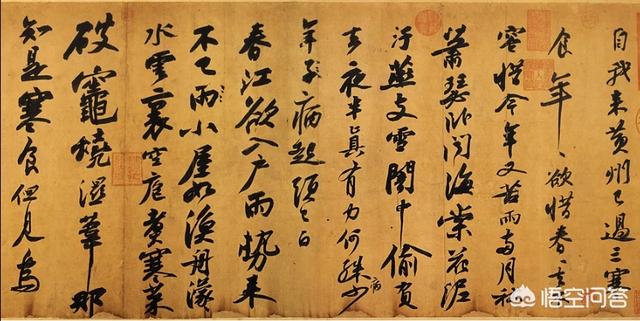 自我來黃州已過三寒
食年〻欲惜春〻去不
容惜今年又苦雨兩月秋
蕭瑟卧聞海棠花泥
汙燕支雪闇中偷負
去夜半真有力何殊病少
年子病起須已白
春江欲入戶雨勢來
不已雨小屋如漁舟濛〻
水雲裏空庖煮寒菜
破竈燒濕葦那
知是寒食但見烏
悟空问答